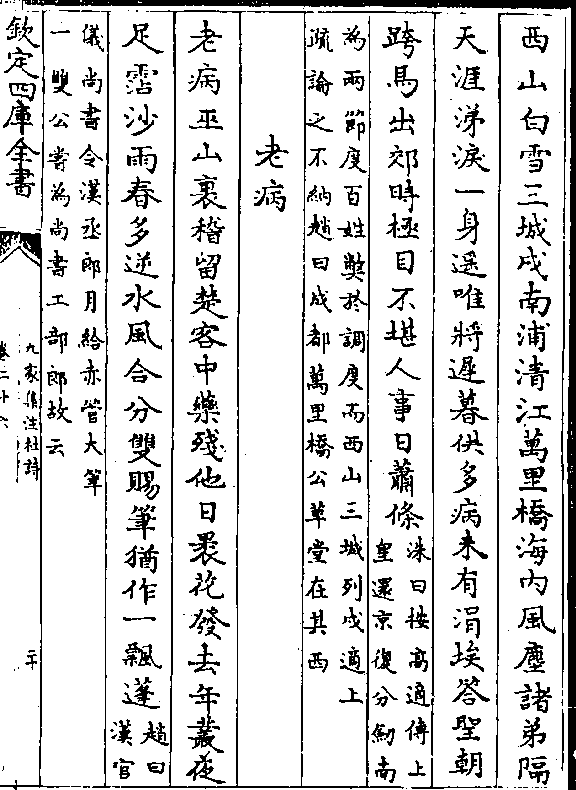 西山白雪三城戍南浦清江萬里橋海内風塵諸弟隔
天涯涕淚一身遥唯將遲暮供多病未有涓埃荅聖朝
跨馬出郊時極目不堪人事日蕭條
洙曰按髙適傳上
皇還京復分劒南
為兩節度百姓弊於調度而西山三城列戍適上
疏論之不納趙曰成都萬里橋公草堂在其西
老病
老病巫山裏稽留楚客中藥殘他日裹花發去年叢夜
足霑沙雨春多逆水風合分雙賜筆猶作一飄蓬
趙曰
漢官
儀尚書令漢丞郎月給赤管大筆
一雙公嘗為尚書工部郎故云
欽定四庫全書
九家集注杜詩
卷二十六
二十